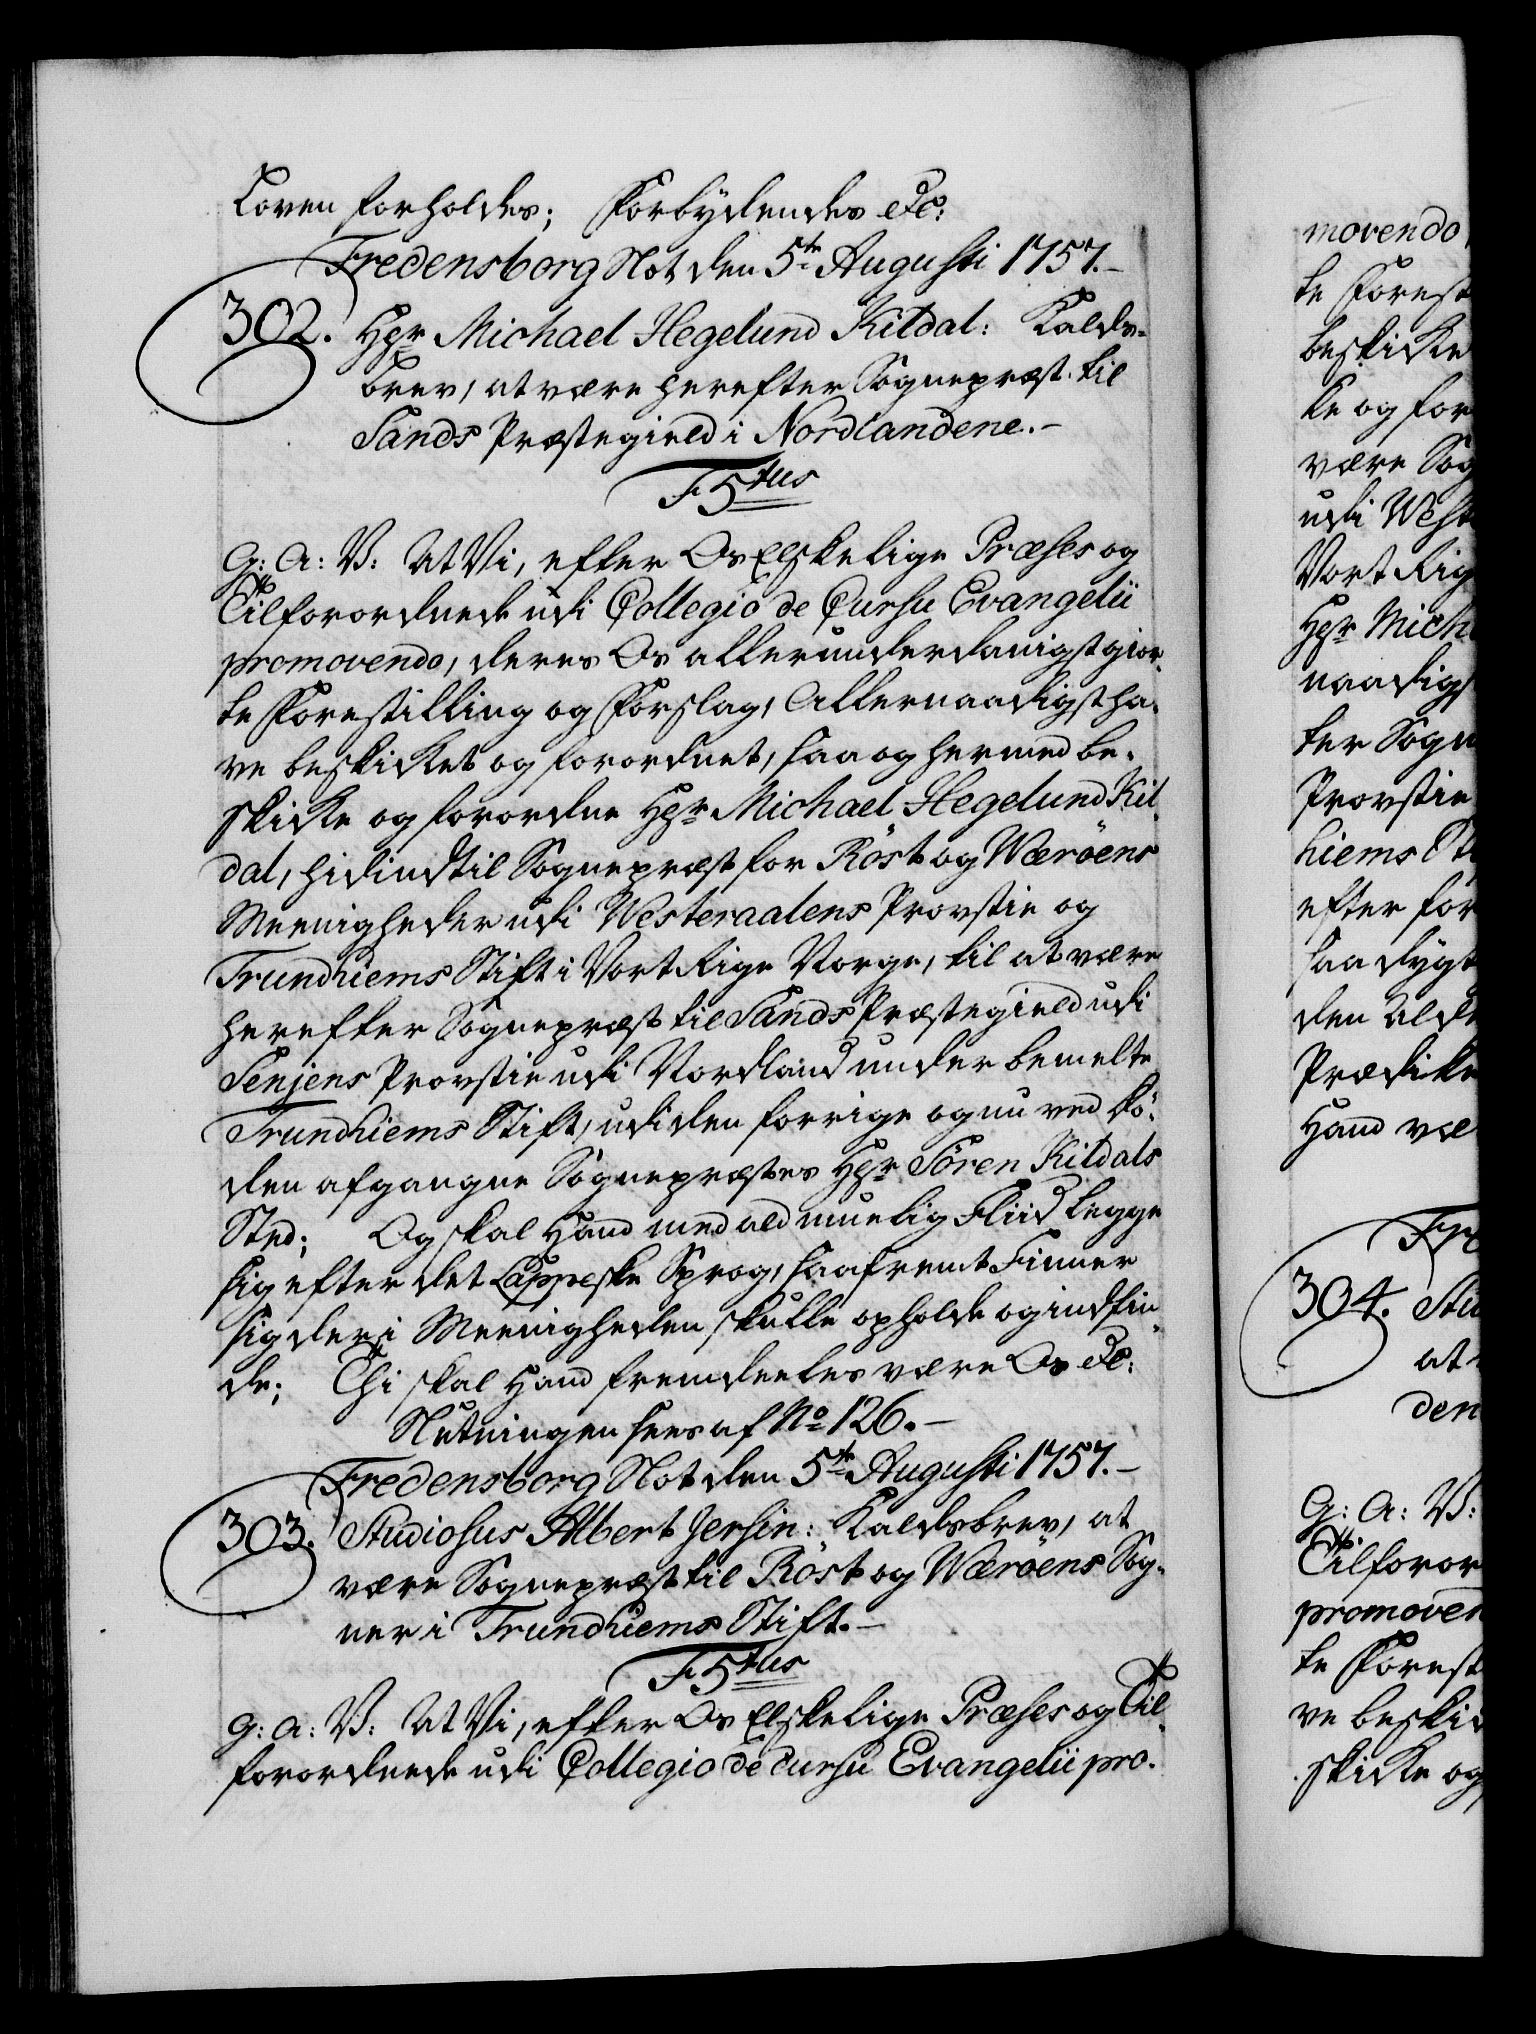 Loven forholdes; Forbydendes etc:
Fredensborg Slot den 5te Augusti 1757.-
302. Hr Michael Hegelund Kildal: Kalds-
brev, at være herefter Sognepræst til
Sands Præstegield i Nordlandene.-
F 5tus
G: A: V: At Vi, efter Os Elskelige Præses og
Tilforordnede udi Collegio de Cursu Evangelii
promovendo, deres Os allerunderdanigst gior-
te Forestilling og Forslag, Allernaadigst ha-
ve beskicket og forordnet, saa og hermed be-
skicke og forordne Hr Michael Hegelund Kil-
dal, hidindtil Sognepræst for Röst og Wæröens
Meenigheder udi Westeraalens Provstie og
Trundhiems Stift i Vort Rige Norge, til at være
herefter Sognepræst til Sands Præstegield udi
Senjens Provstie udi Nordland under bemelte
Trundhiems Stift, udi den forrige og nu ved Dö-
den afgangne Sognepræstes Hr Sören Kildals
Sted; Og skal Hand med ald muelig Fliid legge
sig efter det Lappeske Sprog, saafremt Finner
sig der i Meenigheden skulle opholde og indfin-
de; Thi skal Hand fremdeeles være Os etc:
Slutningen sees af No 126.-
Fredensborg Slot den 5te Augusti 1757.-
303. Studiosus Albert Jersin: Kaldsbrev, at
være Sognepræst til Röst og Wæröens Sog-
ner i Trundhiems Stift.-
F 5tus
G: A: V: At Vi, efter Os Elskelige Præses og Til-
forordnede udi Collegio de cursu Evangelii pro-
movendo
te Forest
beskicke
ke og for
være Sog
udi West
Vort Rig
Hr Mich
naadigs
ter Sogn
Provstie
hiems St
efter for
saa dygt
den Alde
Prædike
Hand væ
Fre
304. Stu
at
den
G: A: V:
Tilforor
promoven
te Forest
ve beskic
skicke og